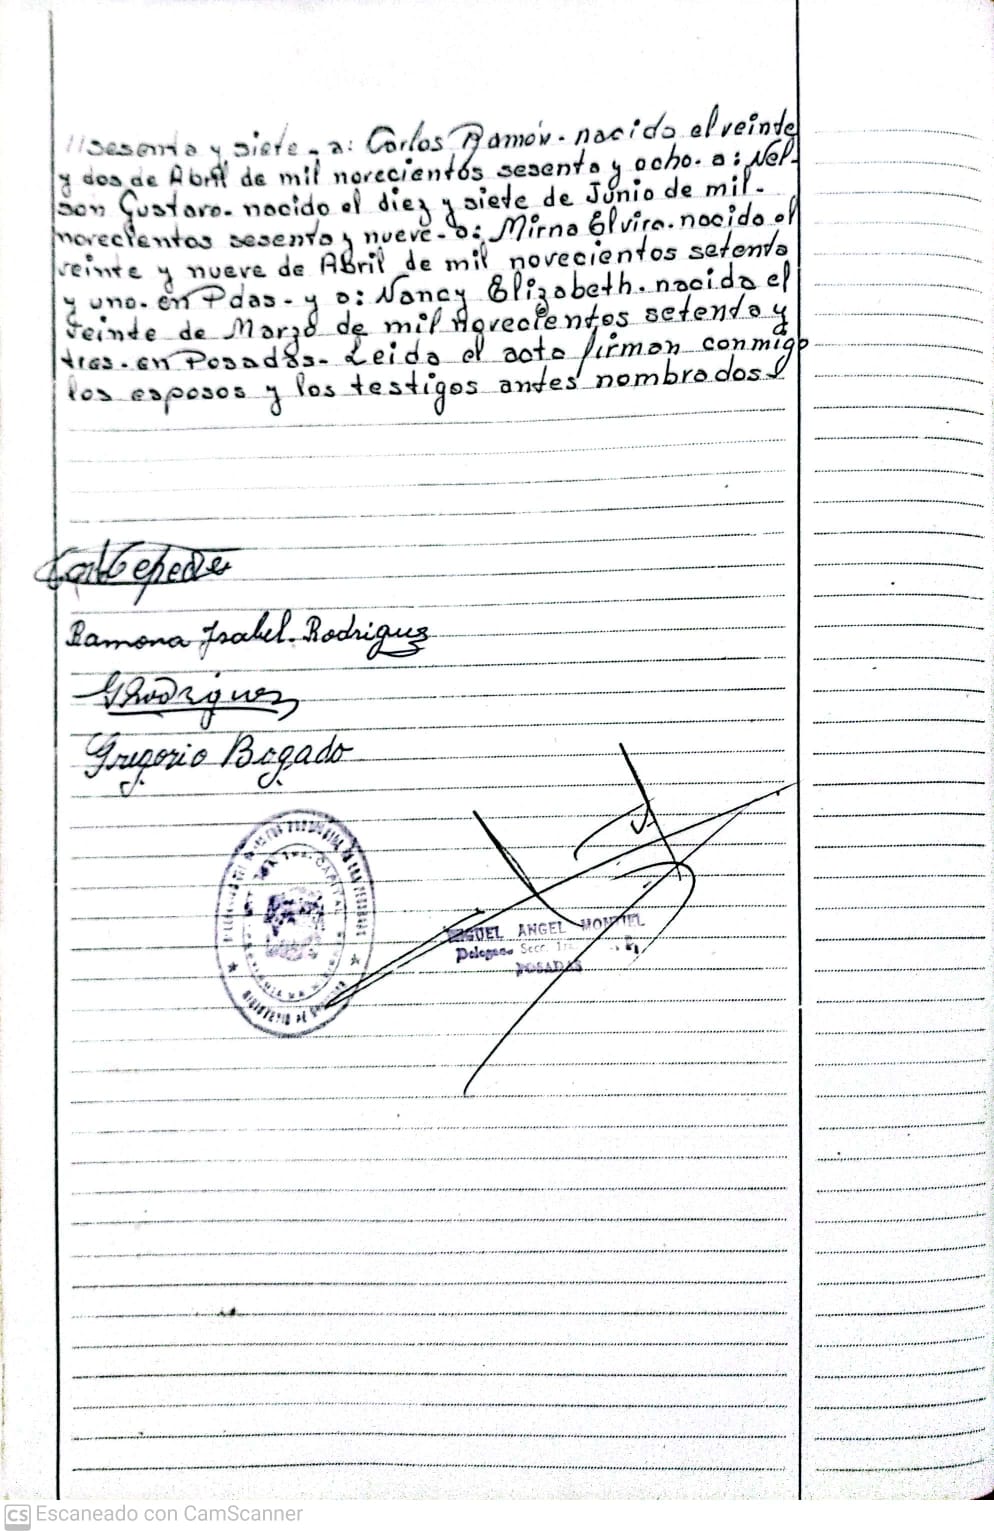 //sesenta y siete - a: Carlos Ramón. nacido el veinte
y dos de Abril de mil novecientos sesenta y ocho. a: Nel-
son Gustavo. nacido el diez y siete de Junio de mil-
novecientos sesenta y nueve- a: Mirna Elvira. nacida el
veinte y nueve de ABril de mil novecientos setenta
y uno. en Pdas- y a: Nancy Elizabeth. nacida el
veinte de Marzo de mil novecientos setenta y
tres. en Posadas- Leida el acta firman conmigo
los esposos y los testigos antes nombrados
Ramona Isabel. Rodriguez
GRodriguez
Gregorio Bogado
MIGUEL ANGEL MONTIEL
Delegado Secc. 1ra.
POSADAS
CAPITAL
MINISTERIO DE GOBIERNO
CS Escaneado con CamScanner